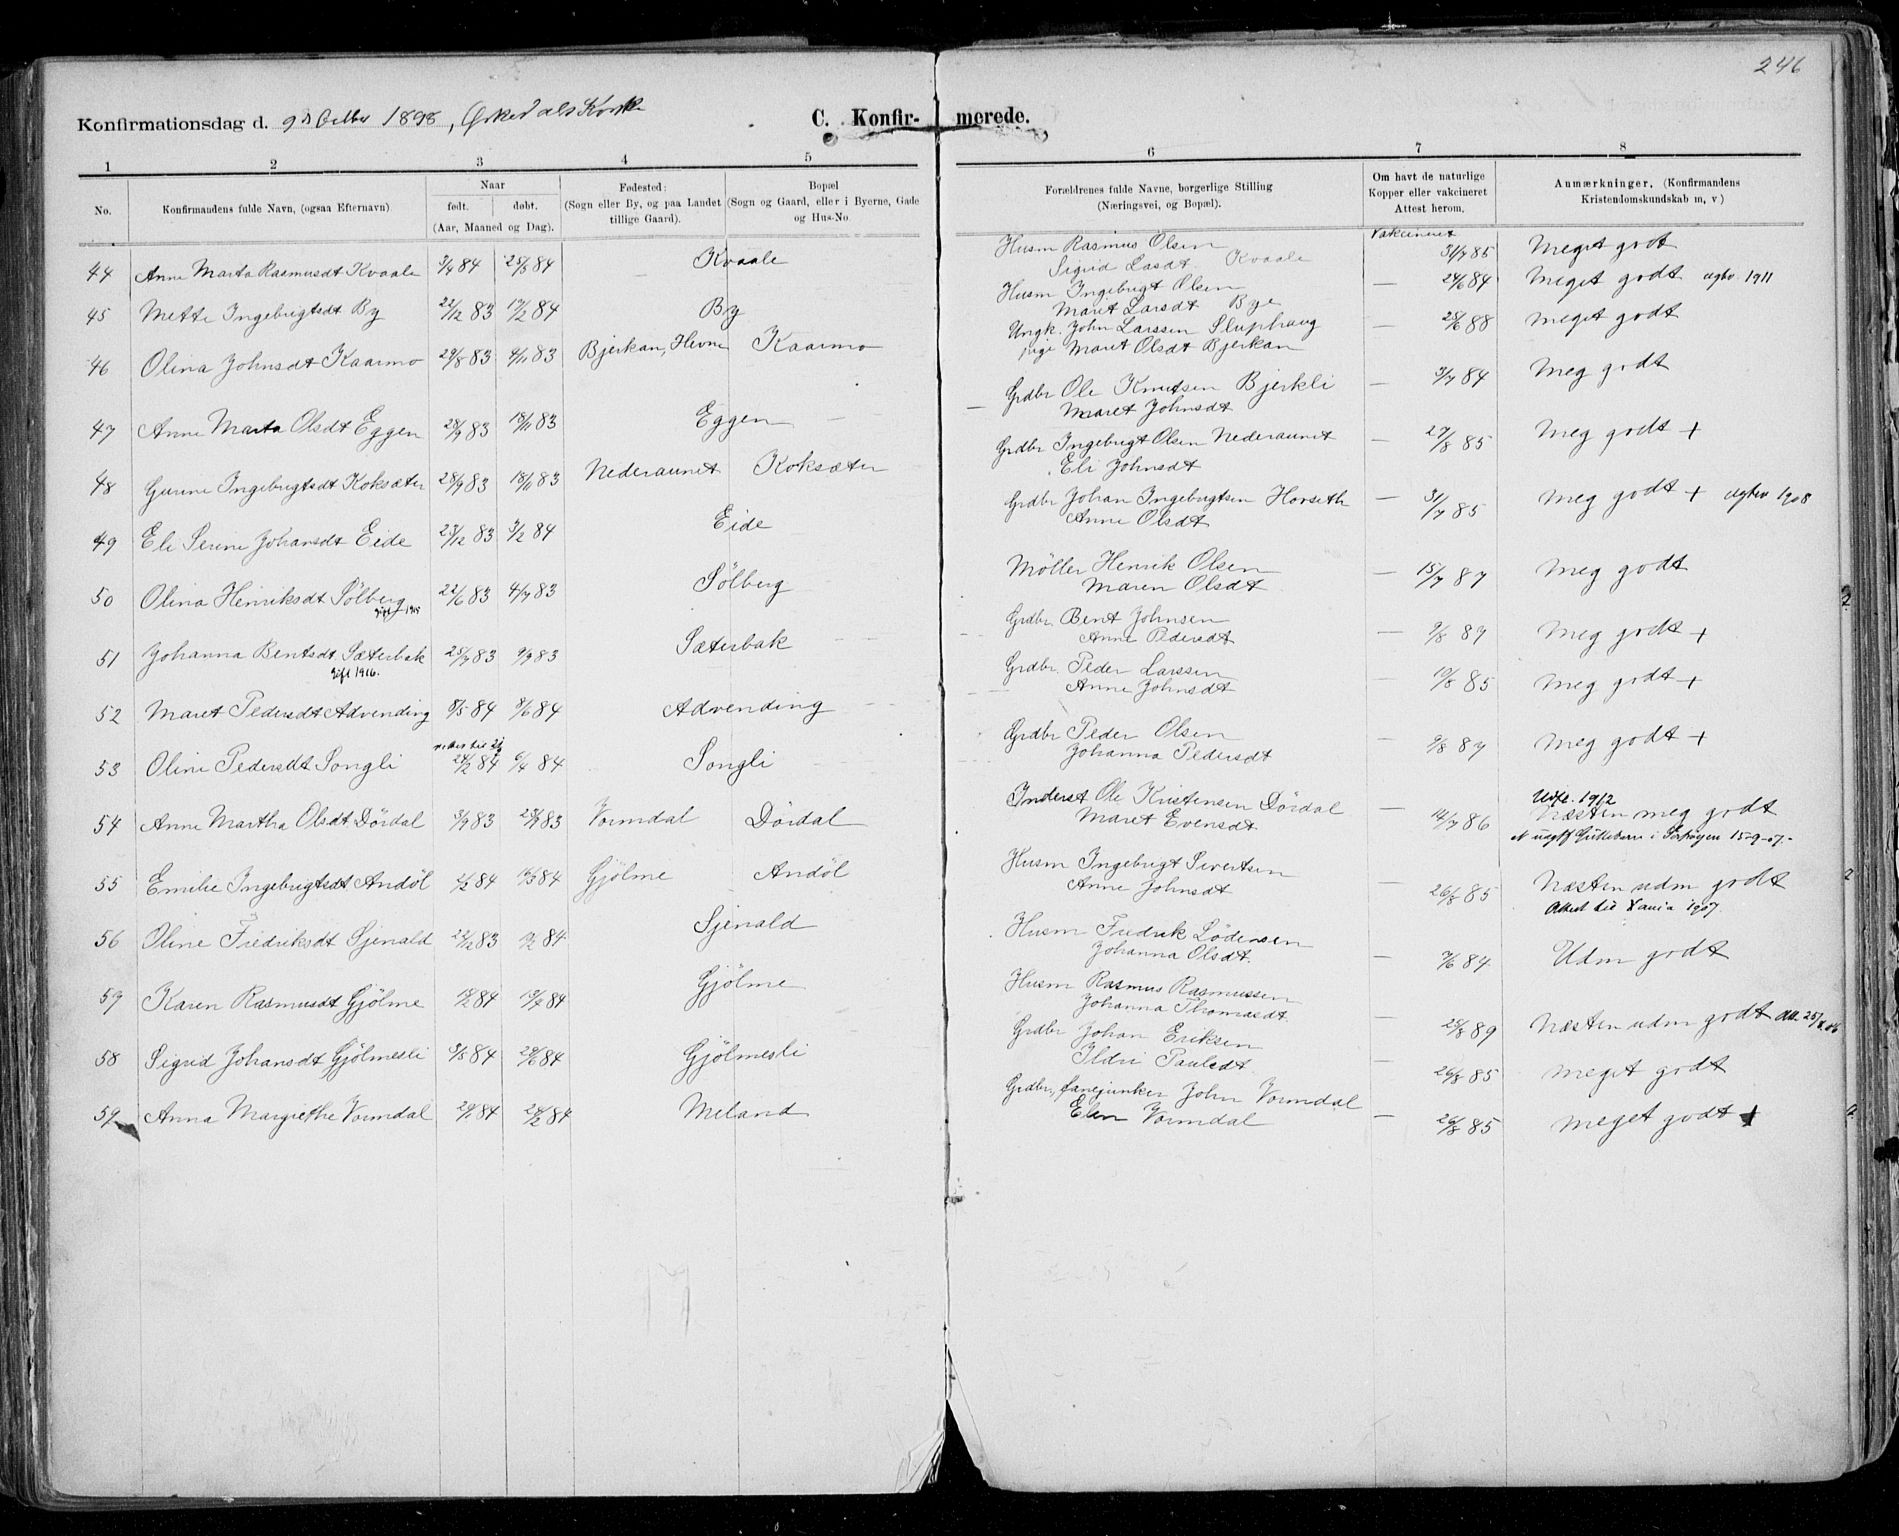 246
Konfirmationsdag d. 9d Octbr 1898, Orkedals Kirke
C. Konfir- merede.
1 2 3 4 5 6 7 8
No.
Konfirmandens fulde Navn, (ogsaa Efternavn)
Naar
født. døbt.
(Aar, Maaned og Dag).
Fødested:
(Sogn eller By, og paa Landet
tillige Gaard).
Bopæl
(Sogn og Gaard, eller i Byerne, Gade
og Hus-No.
Forældrenes fulde Navne, borgerlige Stilling
(Næringsvei, og Bopæl).
Om havt de naturlige
Kopper eller vakcineret
Attest herom.
Anmærkninger, (Konfirmandens
Kristendomskundskab m, v)
Vakcineret
44 Anne Marta Rasmusdt Kvaale 84 25/5 84 Kvaale Husm Rasmus Olsen 31/7 85 Meget godt
Sigrid Lasdt Kvaale
45 Mette Ingebrigtsdt By 22/12 83 17/2 84 By Husm Ingebrigt Olsen — 24/6 84 Meget godt 1911
Maret Larsdt Bye
46 Olina Johnsdt Kaarmo 29/8 83 4/11 83 Bjerkan, Hevne Kaarmo Ungk. John Larssen Sluphaug — 28/6 88 Meget godt
pige Maret Olsdt Bjerkan
47 Anne Marta Olsdt Eggen 28/9 83 18/11 83 Eggen Grdbr Ole Knutsen Bjerkli — 3/7 84 Meg godt
Maret Johnsdt
48 Gurine Ingebrigtsdt Koksæter 28/9 83 18/11 83 Nederaunet Koksæter Grdbr Ingebrigt Olsen Nederaunet — 27/8 85 Meg godt +
Eli Johnsdt
49 Eli Serine Johansdt Eide 23/12 83 3/2 84 Eide Grdbr Johan Ingebrigtsen Horseth — 31/7 85 Meg godt + 1908
Anne Olsdt
50 Olina Henriksdt Sölberg 22/6 83 4/7 83 Sölberg Möller Henrik Olsen — 15/7 87 Meg godt
gift 1915
Maren Olsdt
51 Johanna Bentsdt Sæterbak 25/7 83 9/9 83 Sæterbak Grdbr. Bent Johnsen — 9/8 87 Meg godt +
gift 1916.
Anne Pedersdt
52 Maret Pedersdt Advending 8/5 84 8/6 84 Advending Grdbr. Peder Larssen — 19/8 85 Meg godt +
Anne Johnsdt
53 Oline Pedersdt Songli 24/2 84 6/4 84 Songli Grdbr Peder Olsen — 9/8 87 Meg godt +
Johanna Pedersdt
54 Anne Martha Olsdt Dördal 3/9 83 83 Vormdal Dördal Inderst Ole Kristensen Dördal — 14/7 86 1912
Næsten meg godt
Maret Evensdt
15-9-07.
55 Emilie Ingebrigtsdt Andöl 2/2 84 84 Gjölme Andöl Husm Ingebrigt Sivertsen — 26/8 85 Næsten udm godt
Anne Johnsdt
Attest til Xania 1907.
56 Oline Fredriksdt Sjenald 22/12 83 84 Sjenald Husm Fredrik Lödensen — 7/6 84 Udm godt
Johanna Olsdt.
59 Karen Rasmusdt Gjölme 84 84 Gjölme Husm Rasmus Rasmussen — 28/8 89 Næsten udm godt att. 25/8 06
Johanna Thomasdt.
58 Sigrid Johansdt Gjölmesli 3/5 84 84 Gjölmesli Grdbr Johan Eriksen — 26/8 85 Meget godt
Ildri Paulsdt.
59 Anna Margrethe Vormdal 84 84 Meland Grdbr, Fanejunker John Vormdal — 26/8 85 Meget godt +
Elen Vormdal